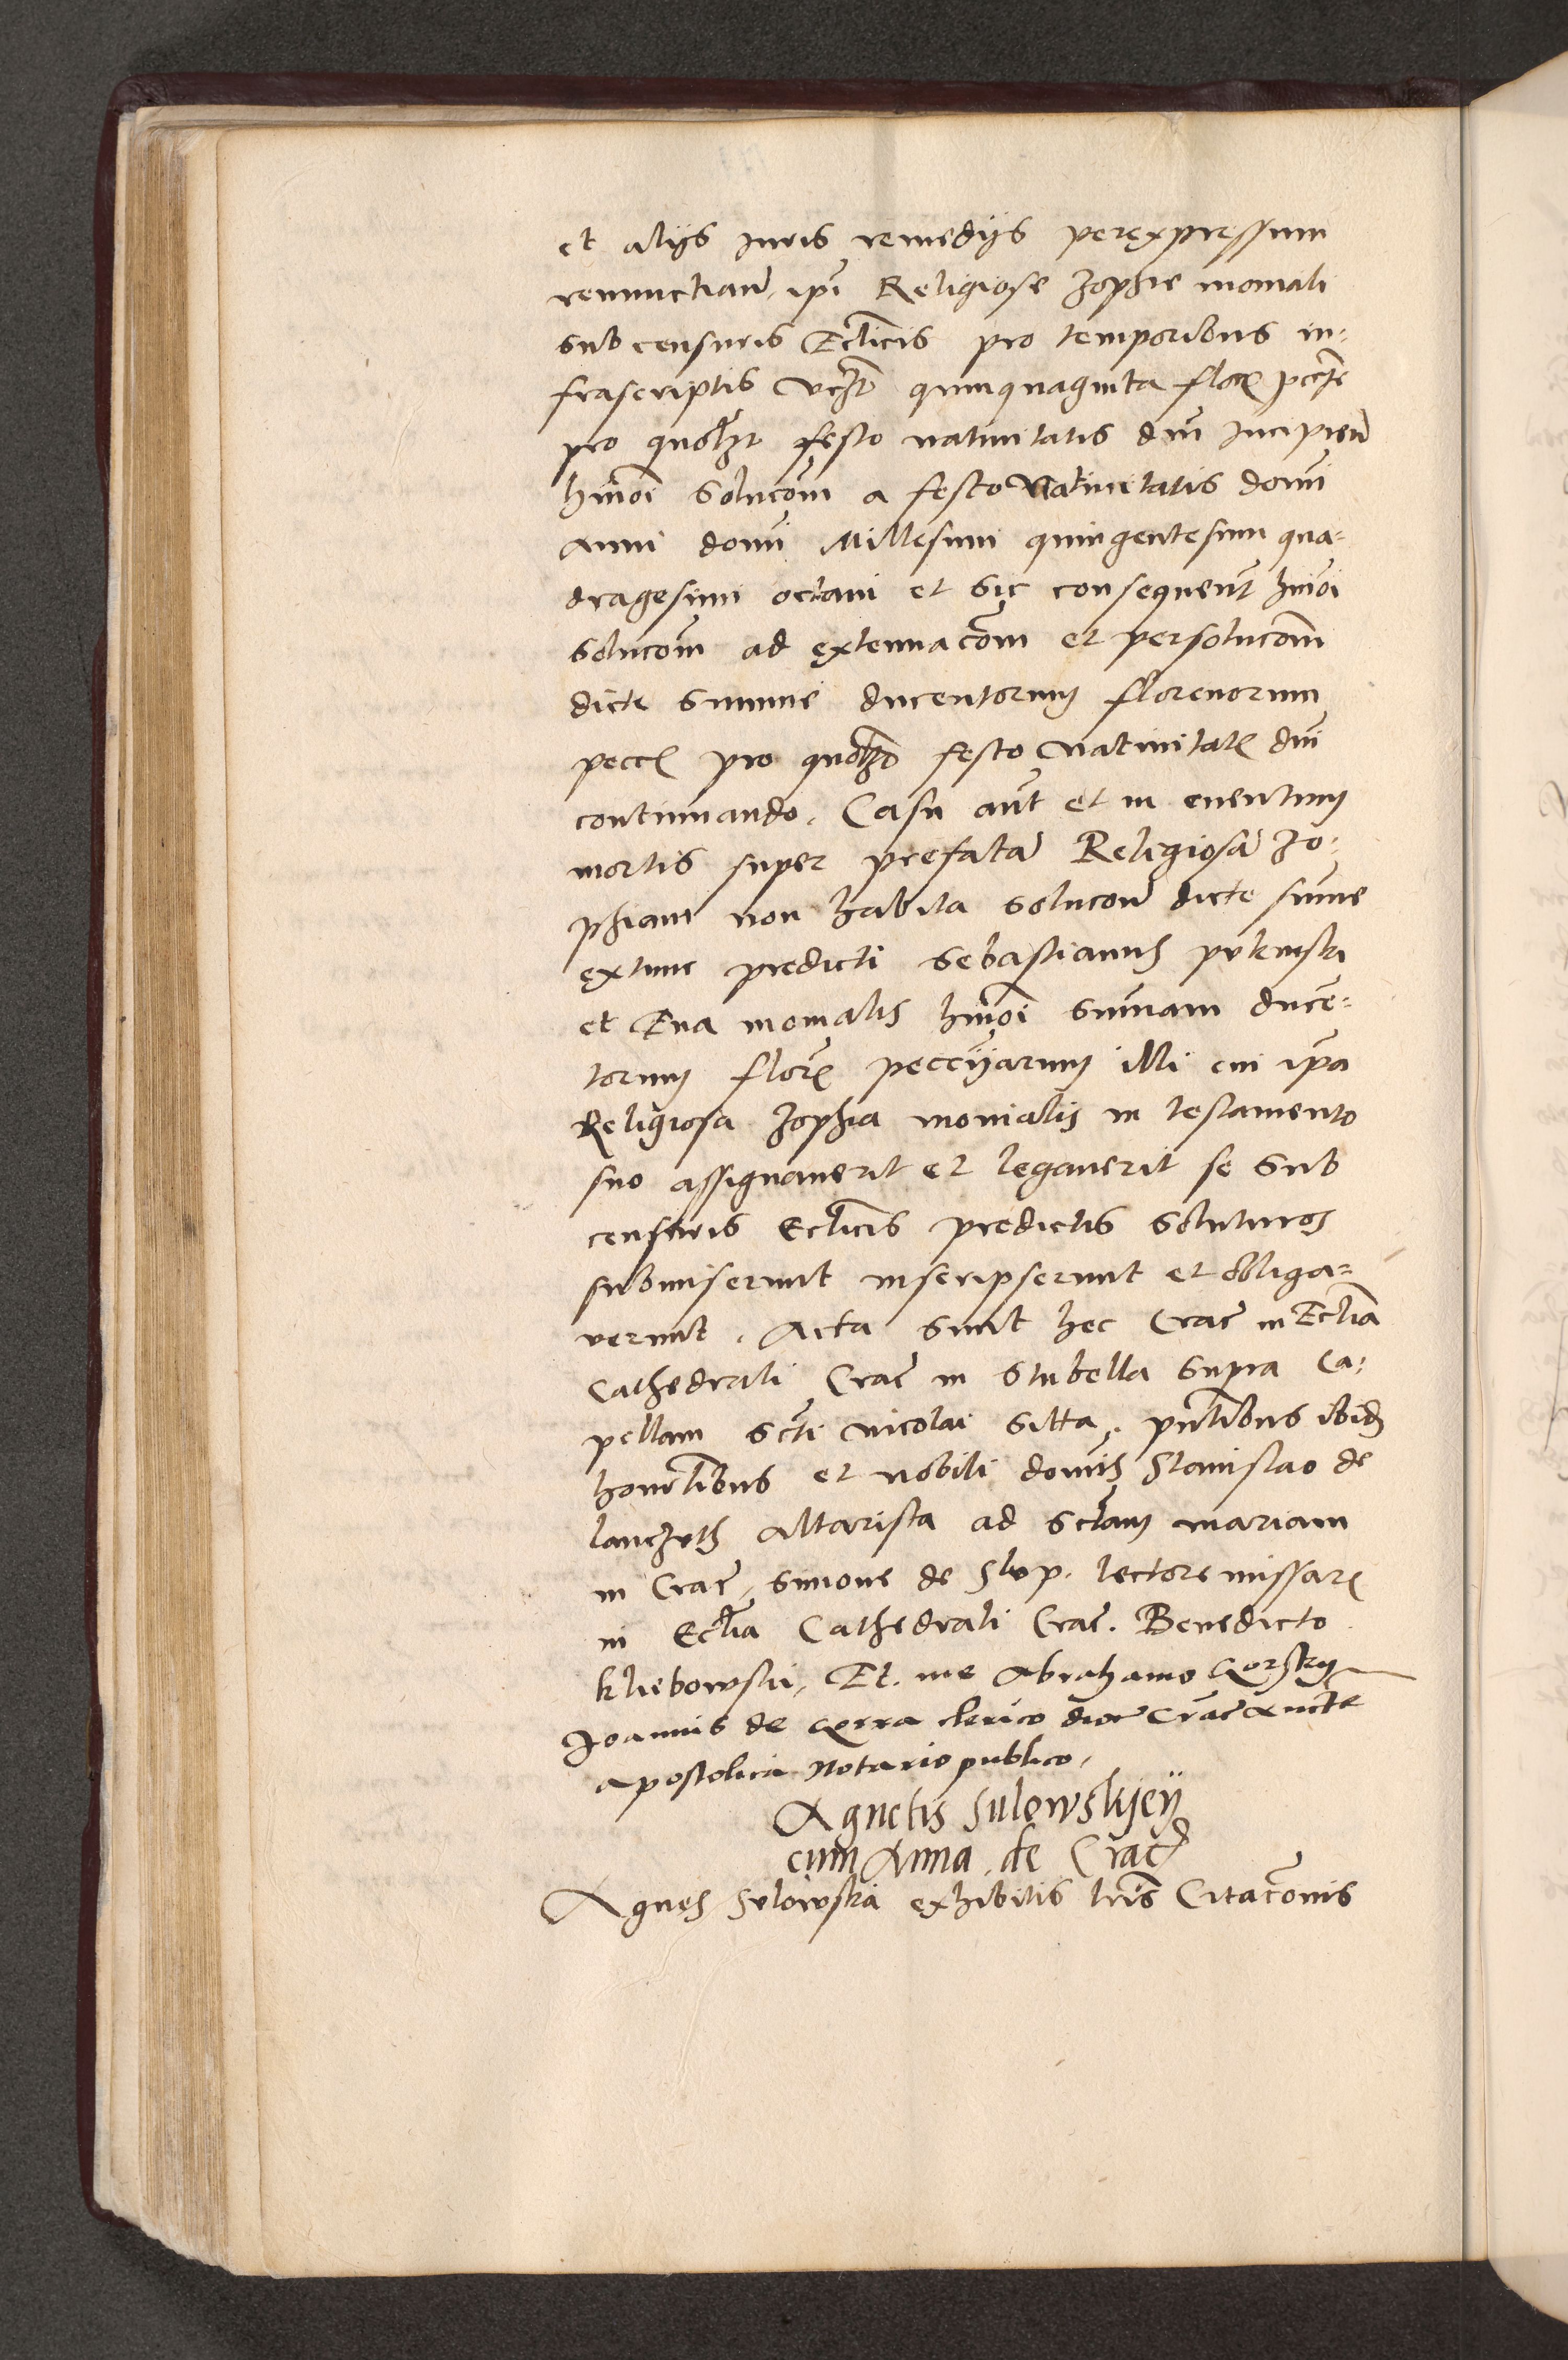 et aliis iuris remedijs per expressum
renunctian̄ ip̄i Religiose Zophie moniali
sub censuris Ecclīcis pro temporibus in-
frascriptis vczt quinquaginta flor
pro quolzt festo natiuitatis dnī incipien̄
hmōi solucōm a festo Natiuitatis domī
Anni domī Millesimi quingentesimi qua-
dragesimi octaui et sic consequent hmōi
solucōm ad extenuacōm et persolucōm
dicte summe ducentorum florenorum
pecc pro quolzt festo Natiuitatis dnī
continuando. Casu aūt et in euentum
mortis super prefatā Religiosā Zo-
phiam non habita solucōn dicte sūme
extunc predicti Sebastianus
et Eua monialis hmōi summam ducē-
torum flor pecciarum illi cui ip̄a
Religiosa Zophia monialis in testamento
suo assignauerit et legauerit se sub
censuris Ecclīcis predictis soluturos
submiserunt inscripserunt et obliga-
verunt. Acta sunt hec Crac̄ in Eccliā
Cathedrali Crac̄ in stubella supra Ca-
pellam scti Nicolai sitta. pn̄tibus ibid
honor̄libus et nobili domīs Stanislao de
lanczuth altarista ad sctam mariam
in Crac̄, Simone de Slop. lectore missar
in Ecclīa Cathedrali Crac̄. Benedicto
kliebowski. Et me Abrahamo Gorsky
Joannis de Gorra clerico dioc̄ Crac̄ Aucte
apostolica Notario publico.
Agnetis Sulowskijey
cum Anna de Crac
Agnes Sulowska exhibitis lrīs Citacōnis